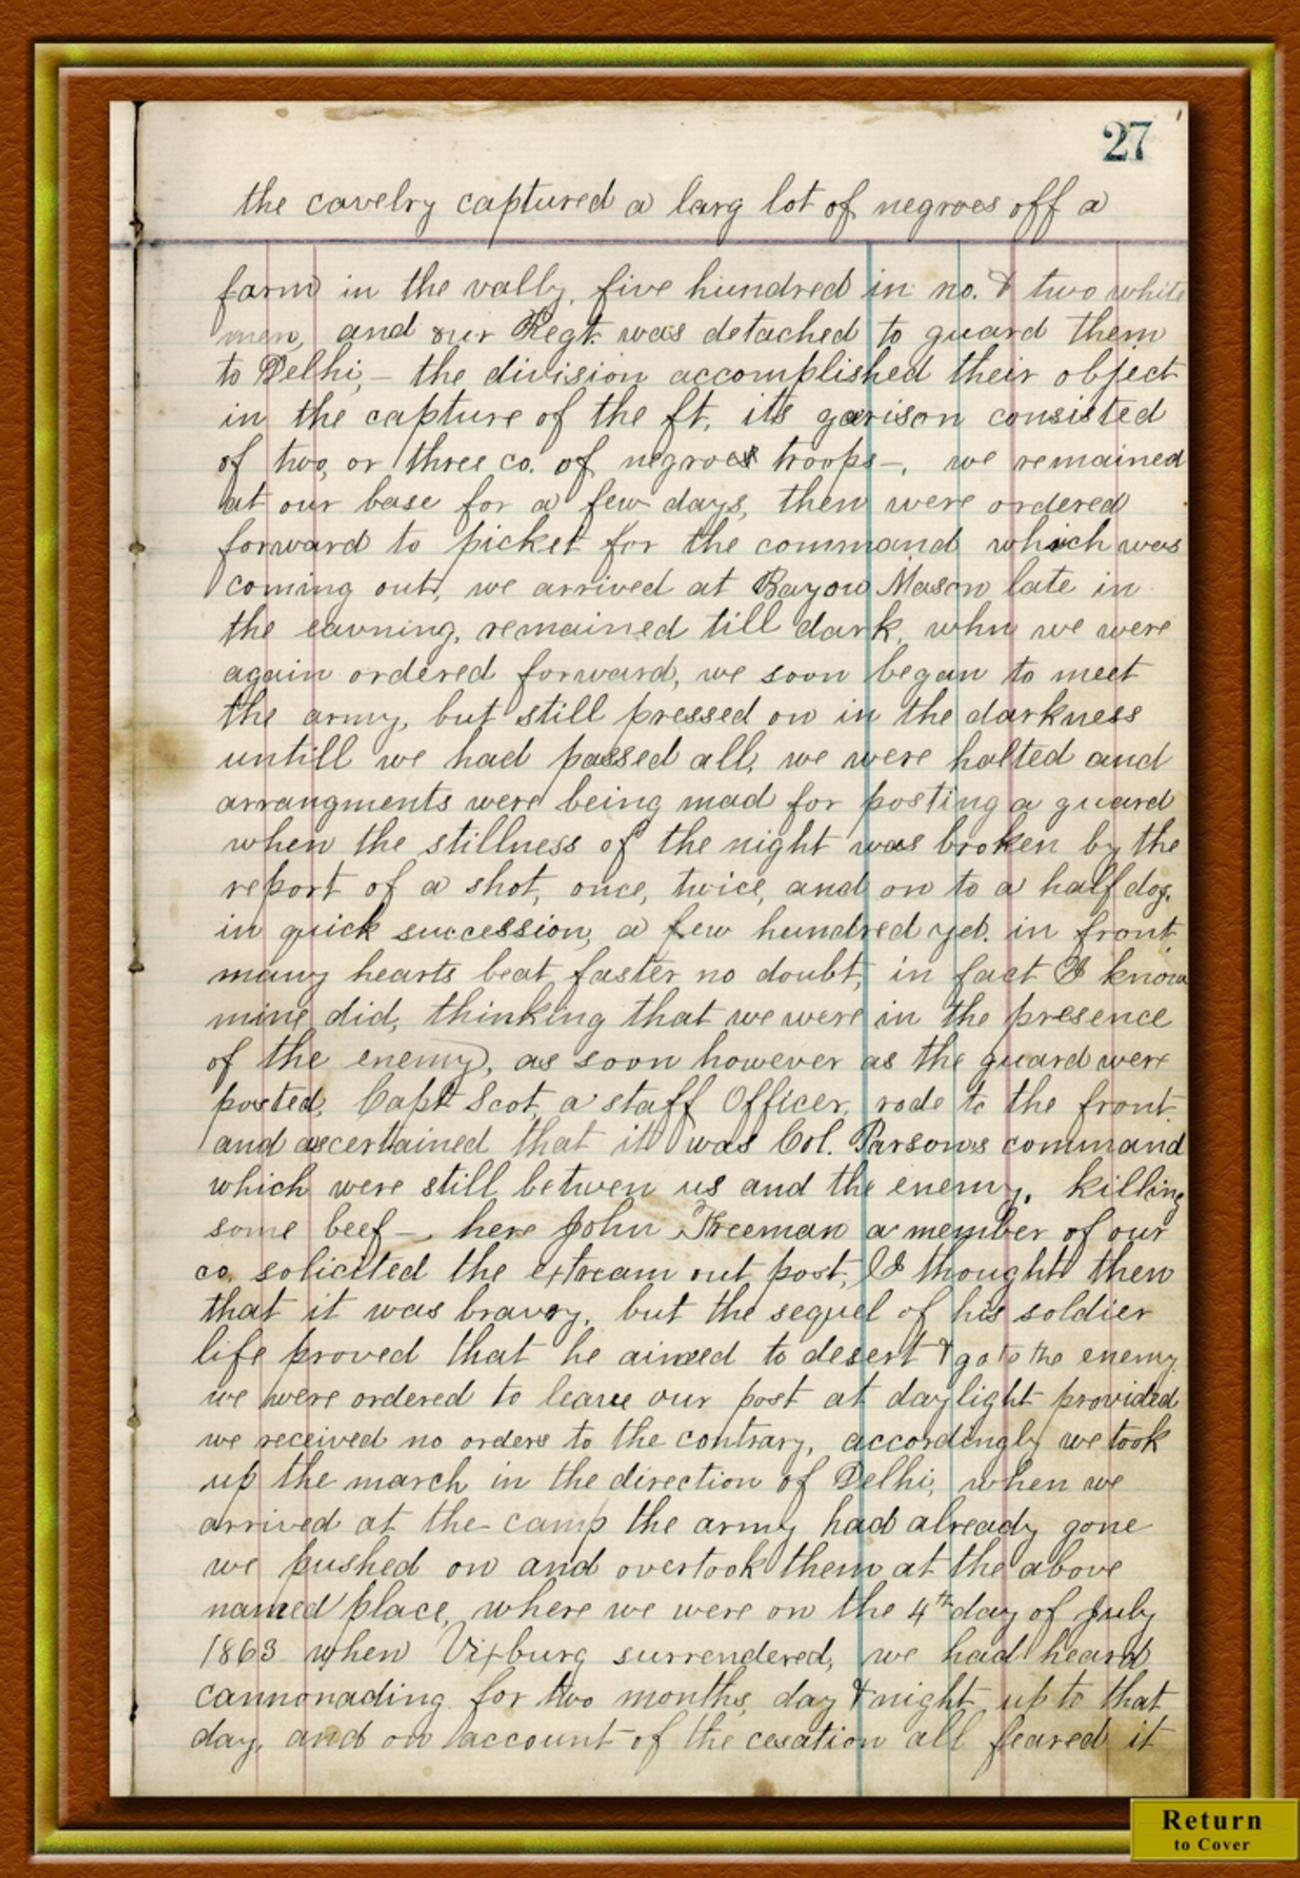 27
the cavelry captured a larg lot of negroes off a
farm in the vally, five hundred in no. & two white
men, and our Regt. was detached to guard them
to Delhi, – the division accomplished their object
in the capture of the ft, its garison consisted
of two, or three co. of negroes troops –, we remained
at our base for a few days, then were ordered
forward to picket for the command which was
coming out, we arrived at Bayou Mason late in
the eavning, remained till dark, whn we were
again ordered forward, we soon began to meet
the army, but still pressed on in the darkness
untill we had passed all, we were halted and
arrangments were being mad for posting a guard
when the stillness of the night was broken by the
report of a shot, once, twice, and on to a half doz.
in quick succession, a few hundred yds. in front
many hearts beat faster no doubt, in fact I know
mine did, thinking that we were in the presence
of the enemy, as soon however as the guard were
posted, Capt Scot, a staff Officer, rode to the front
and ascertained that it was Col. Parsons command
which were still betwen us and the enemy, killing
some beef – here John Freeman a member of our
co. solicited the extream out post, I thought then
that it was bravry, but the sequel of his soldier
life proved that he aimed to desert & go to the enemy
we were ordered to leave our post at daylight provided
we received no orders to the contrary, accordingly we took
up the march in the direction of Delhi, when we
arrived at the camp the army had already gone
we pushed on and overtook them at the above
named place, where we were on the 4th day of July
1863 when Vixburg surrendered, we had heard
cannonading for two months, day & night up to that
day, and on account of the cesation all feared it
Return
to Cover